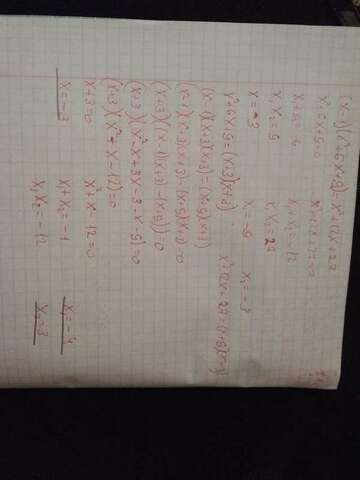 (x-1)(x²+6x+9)=x²+12x+27
x²+6x+9=0 x²+12x+27=0
x+x₂=-6 x₁+x₂=-12
x₁x₂=9 x₁x₂=27
x=-3 x₁=-9 x₂=-3
x²+6x+9=(x+3)(x+3) x²+12x+27=(x+9)(x+3)
(x-1)(x+3)(x+3)=(x+9)(x+3)
(x-1)(x+3)(x+3)-(x+9)(x+3)=0
(x+3)((x-1)(x+3)-(x+9))=0
(x+3)(x²-x+3x-3-x-9)=0
(x+3)(x²+x-12)=0
x+3=0 x²+x-12=0
x=-3 x₁+x₂=-1 x₁=-4
x₁x₂=-12 x₂=3